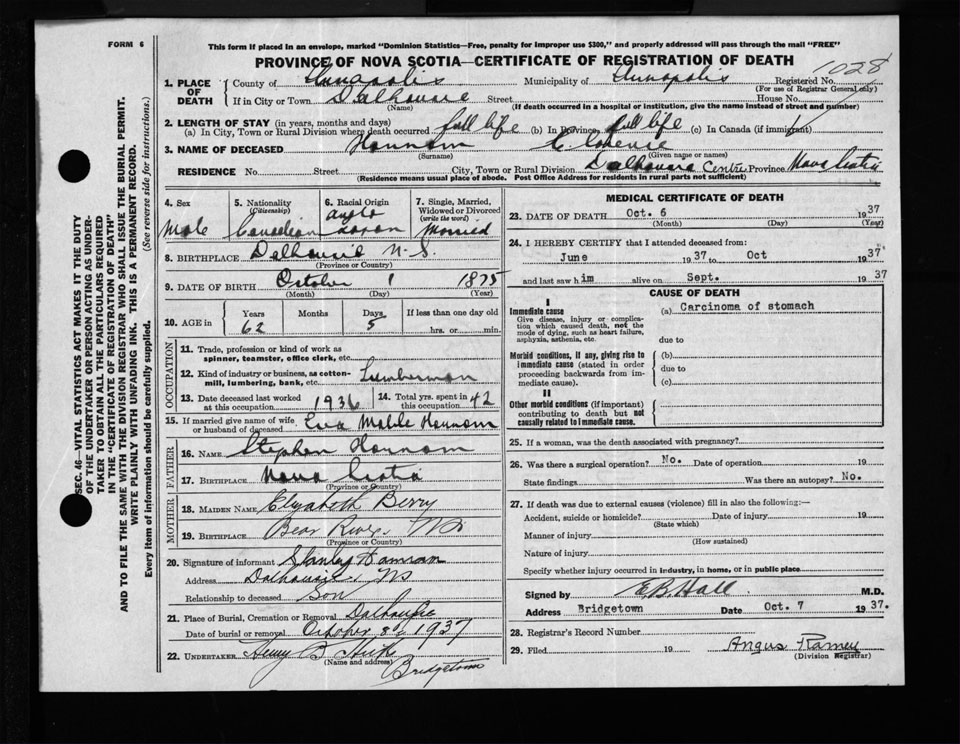 FORM 6
This form if placed in an envelope, marked "Dominion Statistics—Free, penalty for improper use $300," and properly addressed will pass through the mail "FREE"
PROVINCE OF NOVA SCOTIA—CERTIFICATE OF REGISTRATION OF DEATH
1028
1. PLACE OF DEATH
County of Annapolis Municipality of Annapolis Registered No.
(For use of Registrar General only)
If in City or Town Dalhousie Street House No.
(Name) (If death occurred in a hospital or institution, give the name instead of street and number)
2. LENGTH OF STAY (in years, months and days)
(a) In City, Town or Rural Division where death occurred full life (b) In Province full life (c) In Canada (if immigrant)
3. NAME OF DECEASED Hannam
(Surname) (Given name or names)
RESIDENCE No. Street City, Town or Rural Division Dalhousie Centre Province Nova Scotia
(Residence means usual place of abode. Post Office Address for residents in rural parts not sufficient)
4. Sex Male
5. Nationality (Citizenship) Canadian
6. Racial Origin Anglo Saxon
7. Single, Married, Widowed or Divorced (write the word) Married
8. BIRTHPLACE Dalhousie N.S.
(Province or Country)
9. DATE OF BIRTH October 1 1875
(Month) (Day) (Year)
10. AGE in Years 62 Months Days 5 If less than one day old hrs. or min.
OCCUPATION
11. Trade, profession or kind of work as spinner, teamster, office clerk, etc.
12. Kind of industry or business, as cotton-mill, lumbering, bank, etc. Lumberman
13. Date deceased last worked at this occupation 1936
14. Total yrs. spent in this occupation 42
15. If married give name of wife or husband of deceased Eva Mable Hannam
FATHER
16. NAME Stephen Hannam
17. BIRTHPLACE Nova Scotia
(Province or Country)
MOTHER
18. MAIDEN NAME Elizabeth Berry
19. BIRTHPLACE Bear River, NS
(Province or Country)
20. Signature of informant Stanley Hannam
Address Dalhousie, NS
Relationship to deceased Son
21. Place of Burial, Cremation or Removal Dalhousie
Date of burial or removal October 8 1937
22. UNDERTAKER Henry B Hicks
(Name and address) Bridgetown
MEDICAL CERTIFICATE OF DEATH
23. DATE OF DEATH Oct. 6 1937
(Month) (Day) (Year)
24. I HEREBY CERTIFY that I attended deceased from:
June 1937 to Oct 1937
and last saw him alive on Sept. 1937
CAUSE OF DEATH
I
Immediate cause
Give disease, injury or complication which caused death, not the mode of dying, such as heart failure, asphyxia, asthenia, etc.
(a) Carcinoma of stomach
due to
Morbid conditions, if any, giving rise to immediate cause (stated in order proceeding backwards from immediate cause).
(b)
due to
(c)
II
Other morbid conditions (if important) contributing to death but not causally related to immediate cause.
25. If a woman, was the death associated with pregnancy?
26. Was there a surgical operation? No. Date of operation 19
State findings Was there an autopsy? No.
27. If death was due to external causes (violence) fill in also the following:—
Accident, suicide or homicide? Date of injury 19
(State which)
Manner of injury
(How sustained)
Nature of injury
Specify whether injury occurred in industry, in home, or in public place
Signed by E.B. Hall M.D.
Address Bridgetown Date Oct. 7 1937.
28. Registrar's Record Number
29. Filed 19 Angus Ramey
(Division Registrar)
SEC. 46—VITAL STATISTICS ACT MAKES IT THE DUTY
OF THE UNDERTAKER OR PERSON ACTING AS UNDERTAKER
TO OBTAIN ALL THE PARTICULARS REQUIRED
IN THE "CERTIFICATE OF REGISTRATION OF DEATH"
AND TO FILE THE SAME WITH THE DIVISION REGISTRAR WHO SHALL ISSUE THE BURIAL PERMIT.
WRITE PLAINLY WITH UNFADING INK. THIS IS A PERMANENT RECORD.
Every item of information should be carefully supplied. (See reverse side for instructions.)